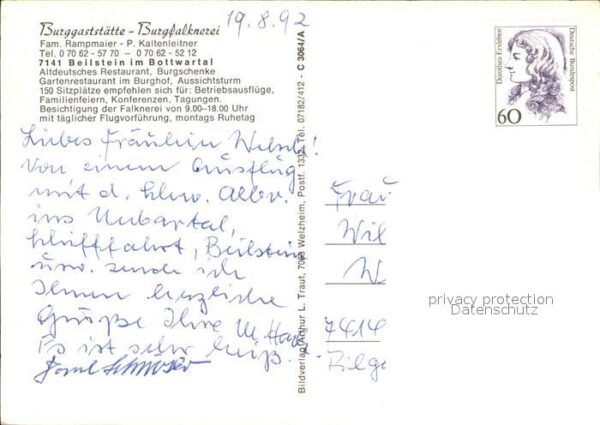 19.8.92
Burggaststätte - Burgfalknerei
Fam. Rampmaier - P. Kaltenleitner
Tel. 0 70 62 - 57 70 - 0 70 62 - 52 12
7141 Beilstein im Bottwartal
Altdeutsches Restaurant, Burgschenke
Gartenrestaurant im Burghof, Aussichtsturm
150 Sitzplätze empfehlen sich für: Betriebsausflüge,
Familienfeiern, Konferenzen, Tagungen.
Besichtigung der Falknerei von 9.00-18.00 Uhr
mit täglicher Flugvorführung, montags Ruhetag
Liebes Fräulein
Von einem Ausflug
mit d. schw. Albv.
ins Neckartal,
Schifffahrt, Beilstein
usw. sende ich
Ihnen herzliche
Grüße Ihre M.
Es ist sehr heiß.
Bildverlag Arthur L. Traut, 7063 Welzheim, Postf. 1332, Tel. 07182/412 - C 3064/A
Dorothea Erxleben
Deutsche Bundespost
60
Frau
Wil
W
7414
privacy protection
Datenschutz